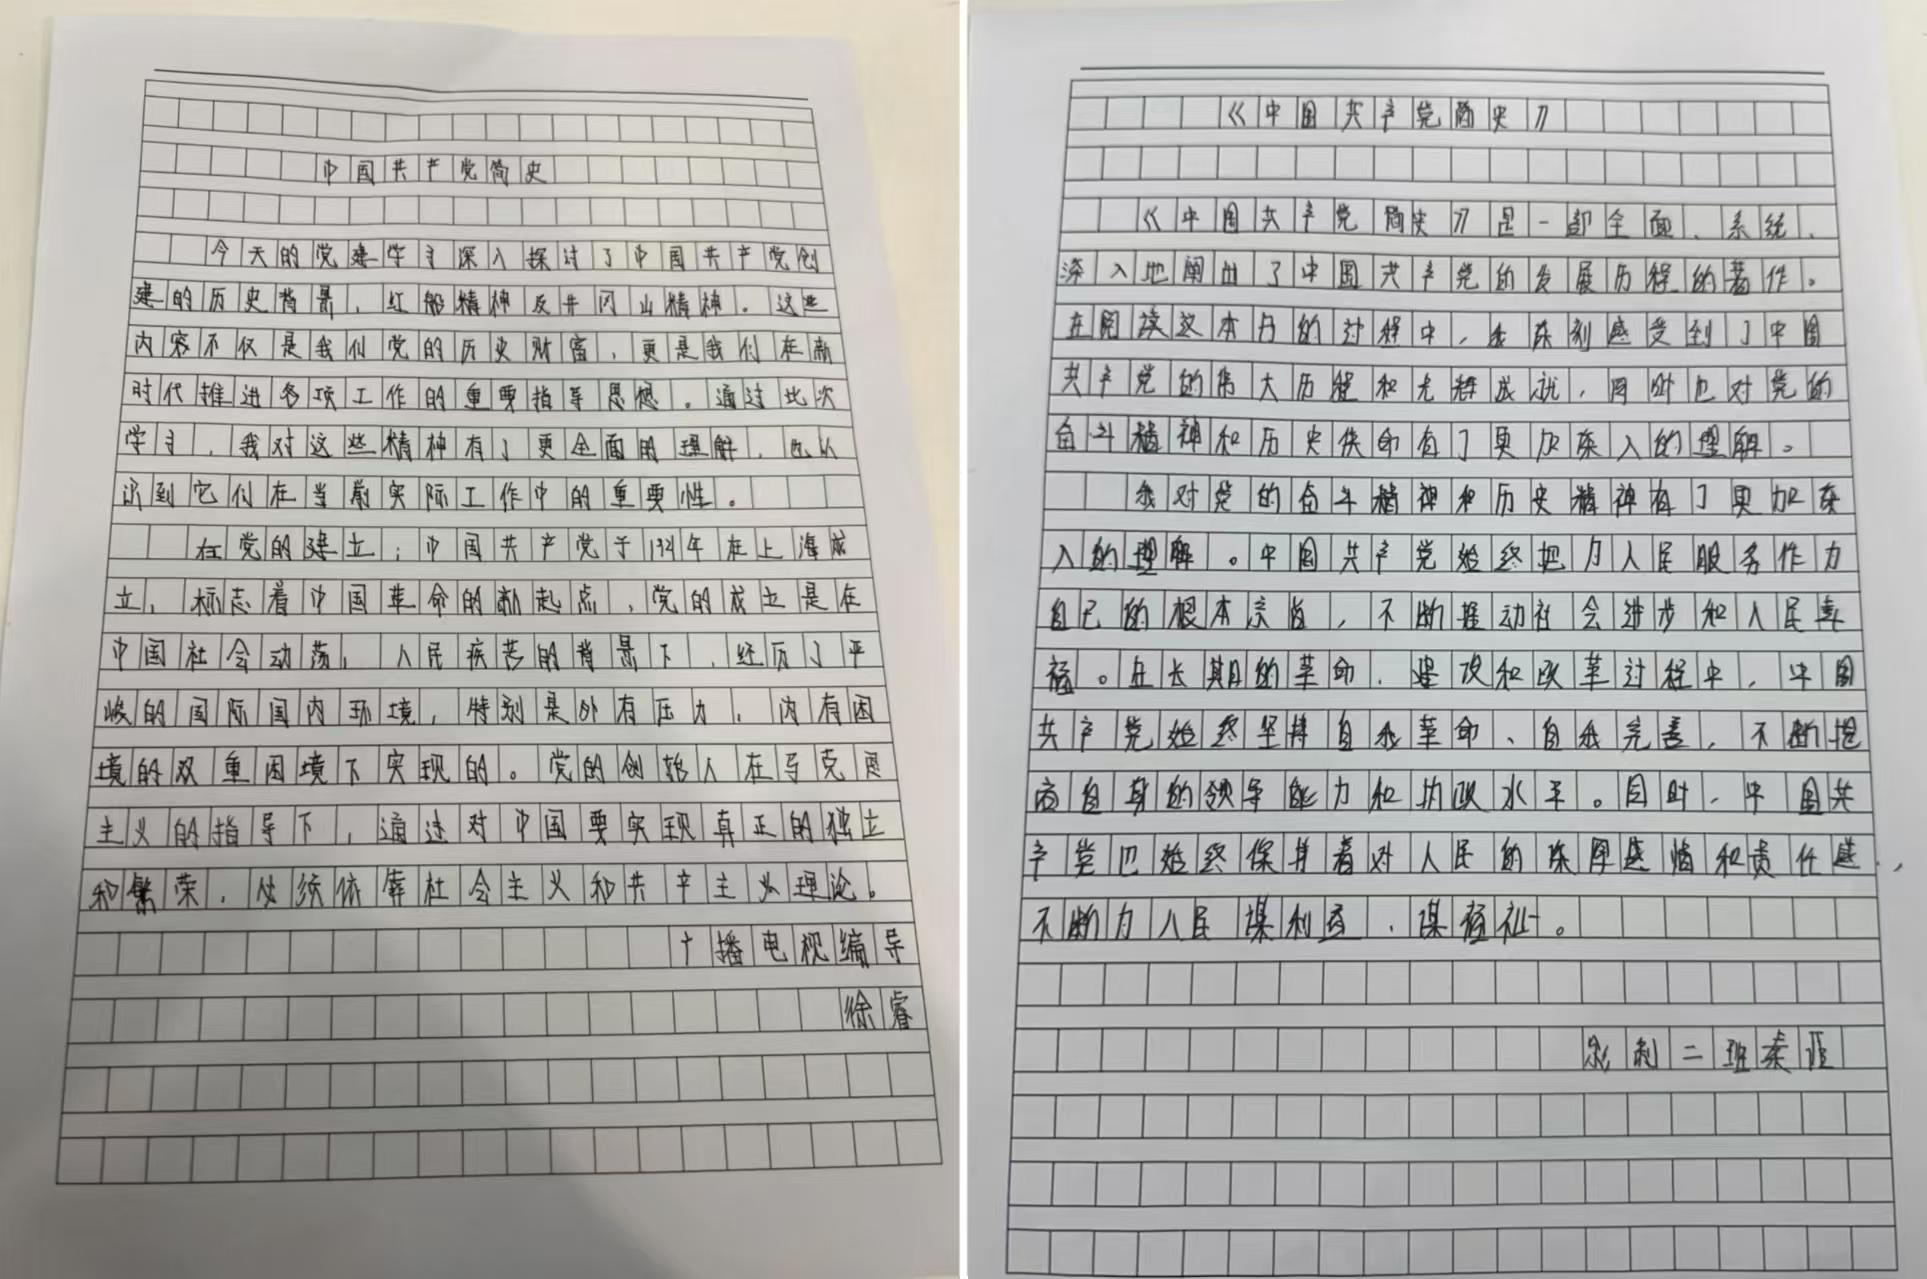 中国共产党简史
今天的党建学习深入探讨了中国共产党创
建的历史背景，红船精神及井冈山精神。这些
内容不仅是我们党的历史财富，更是我们在新
时代推进各项工作的重要指导思想。通过此次
学习，我对这些精神有了更全面的理解，也认
识到它们在当前实际工作中的重要性。
在党的建立；中国共产党于1921年在上海成
立，标志着中国革命的新起点，党的成立是在
中国社会动荡，人民疾苦的背景下，经历了严
峻的国际国内环境，特别是外有压力，内有困
境的双重困境下实现的。党的创始人在马克思
主义的指导下，通过对中国要实现真正的独立
和繁荣，必须依靠社会主义和共产主义理论。
广播电视编导
徐睿
《中国共产党简史》
《中国共产党简史》是一部全面、系统、
深入地阐出了中国共产党的发展历程的著作。
在阅读这本书的过程中，我深刻感受到了中国
共产党的伟大历程和光辉成就，同时也对党的
奋斗精神和历史使命有了更加深入的理解。
我对党的奋斗精神和历史精神有了更加深
入的理解。中国共产党始终把为人民服务作为
自己的根本宗旨，不断推动社会进步和人民幸
福。在长期的革命、建设和改革过程中，中国
共产党始终坚持自我革命、自我完善，不断提
高自身的领导能力和执政水平。同时，中国共
产党也始终保持着对人民的深厚感情和责任感，
不断为人民谋利益，谋福祉。
二班秦